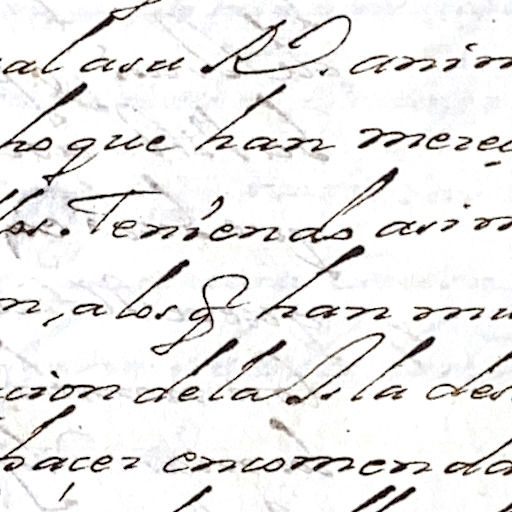 al asu Rl. anim
ho que han mereç
llos. Teniendo asim
n, a los q han mu
cion de la Isla des
haçer encomenda